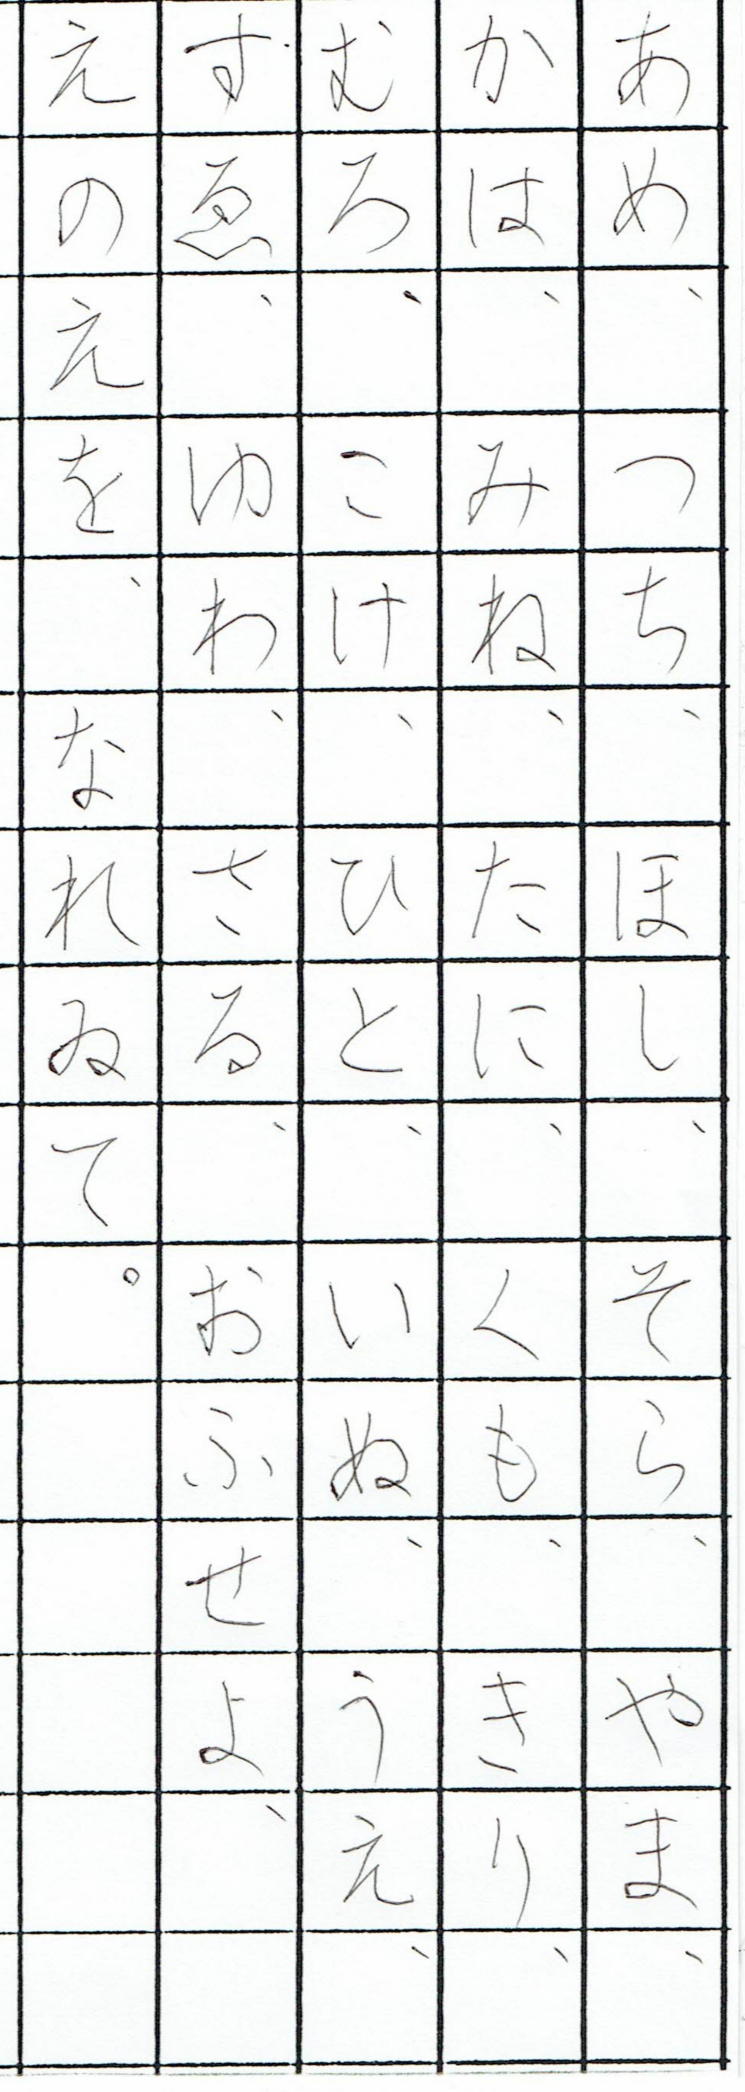 あめ、つち、ほし、そら、やま、
かは、みね、たに、くも、きり、
むろ、こけ、ひと、いぬ、うえ、
すゑ、ゆわ、さる、おふせよ、
えのえを、なれゐて。